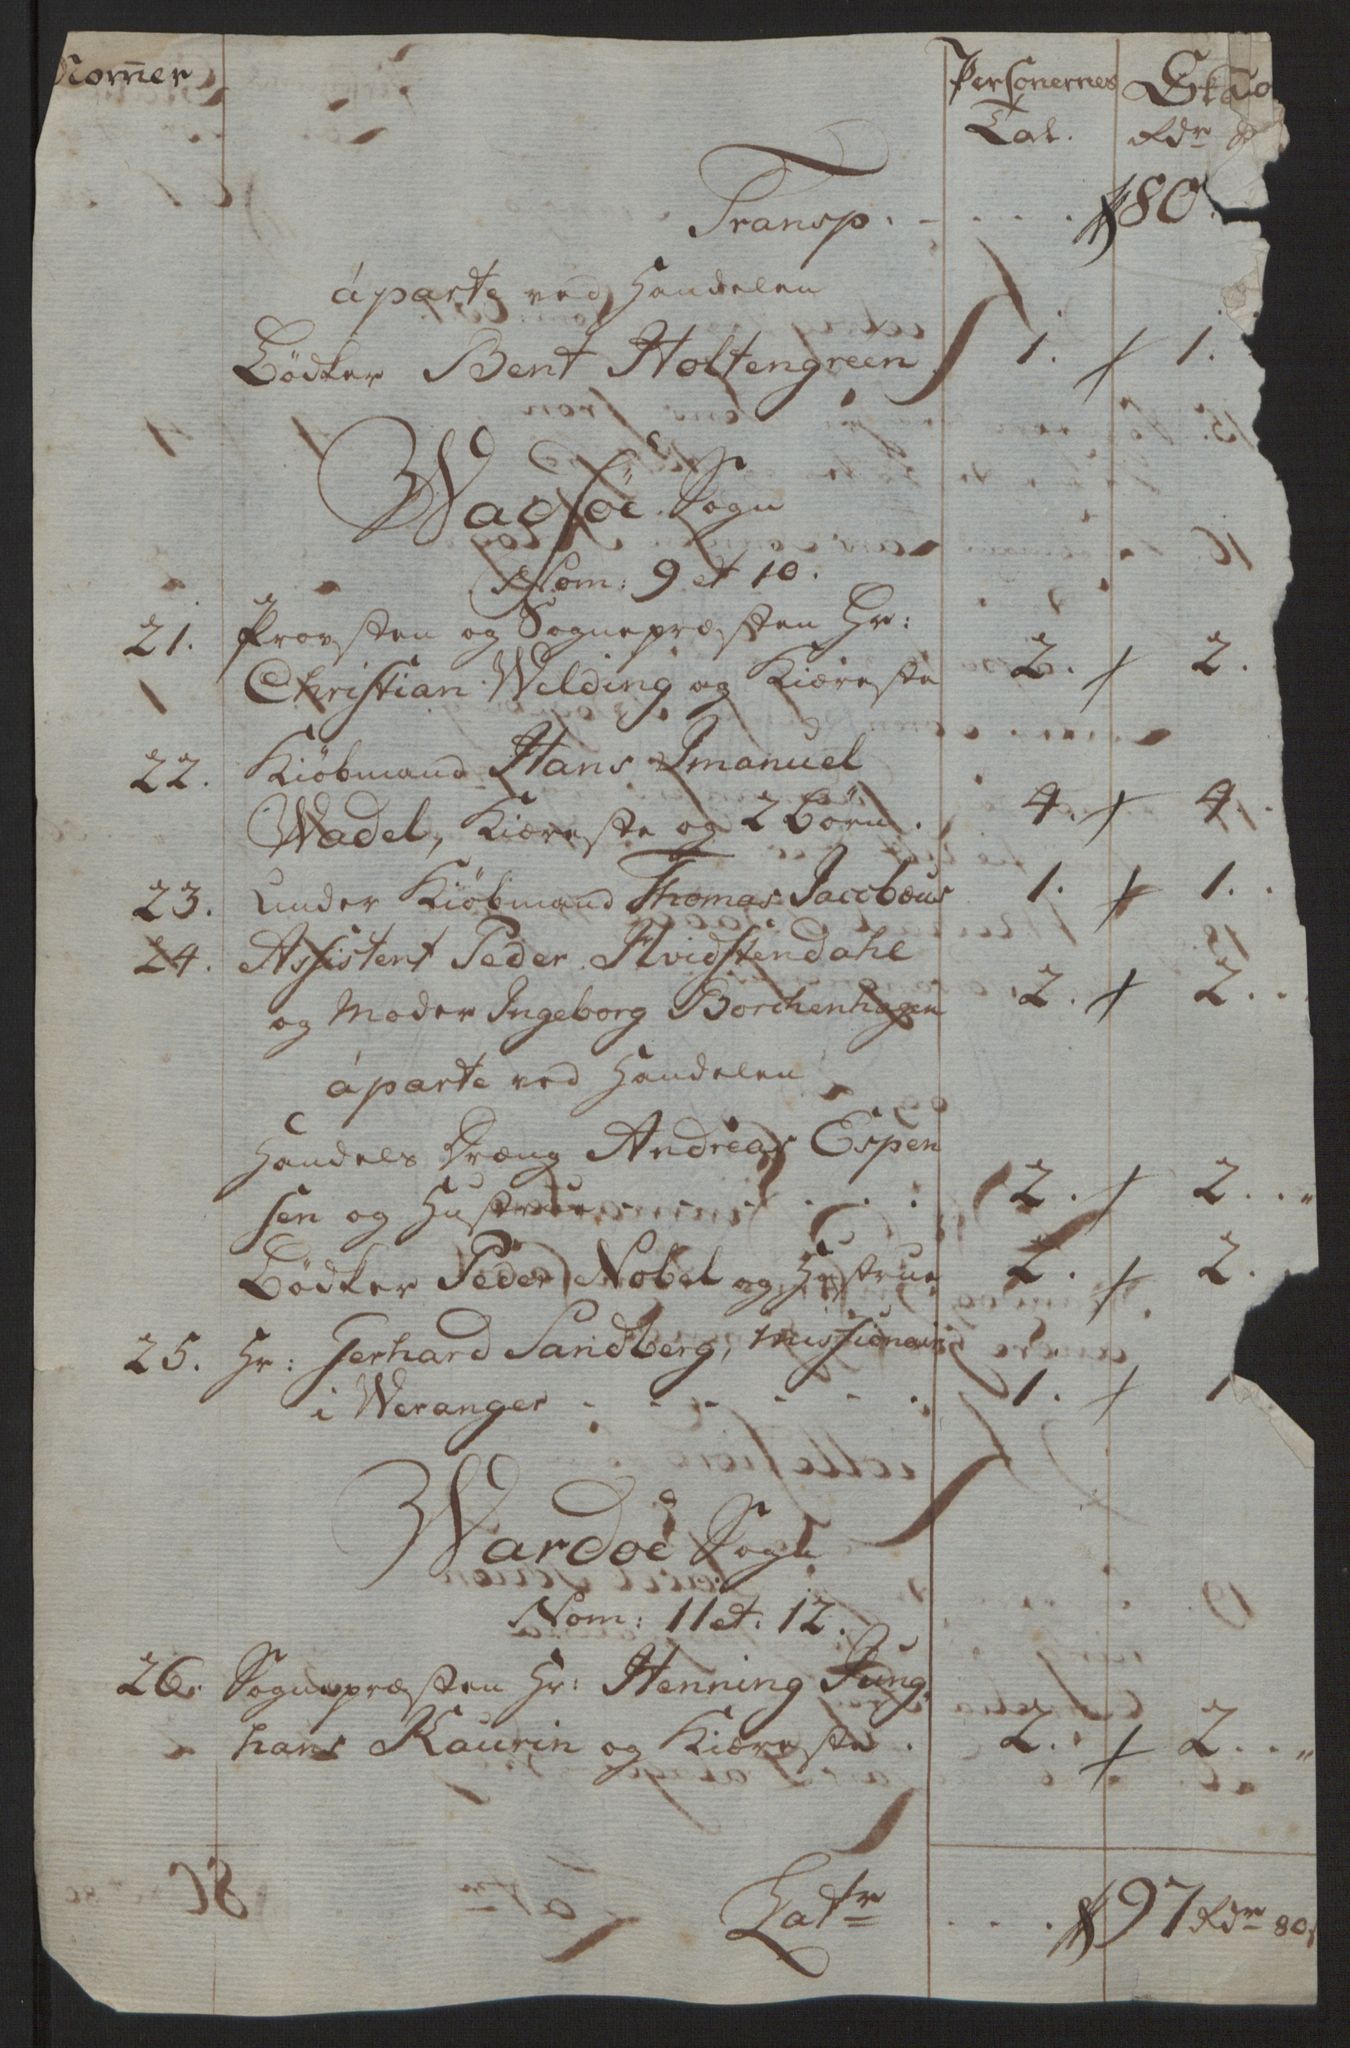 Nom̄er
Personernes Tal.
Rdr
Transp. 80.
á parte ved Handelen
Bödker Bent Holtengreen 1. 1.
Wadsöe Sogn
Nom: 9 et 10.
21. Provsten og Sognepræsten Hr:
Christian Welding og Kiæreste 2. 2.
22. Kiöbmand Hans Imanuel
Wadel, Kiæreste og 2 Börn. 4. 4.
23. Under Kiöbmand Thomas Jacobæus 1. 1.
24. Assistent Peder Hvidstendahl
og Moder Ingeborg Borchenhagen 2. 2.
á parte ved Handelen
Handels Dræng Andreas Espen
sen og Hustrue 2. 2.
Bödker Peder Nobel og Hustrue 2. 2.
25. Hr: Gerhard Sandberg, Missionair
i Weranger 1. 1
Wardöe Sogn
Nom: 11 et. 12.
26. Sognepræsten Hr: Henning Jung
hans Kaurin og Kiæreste. 2. 2.
Latr 97 Rdr 80